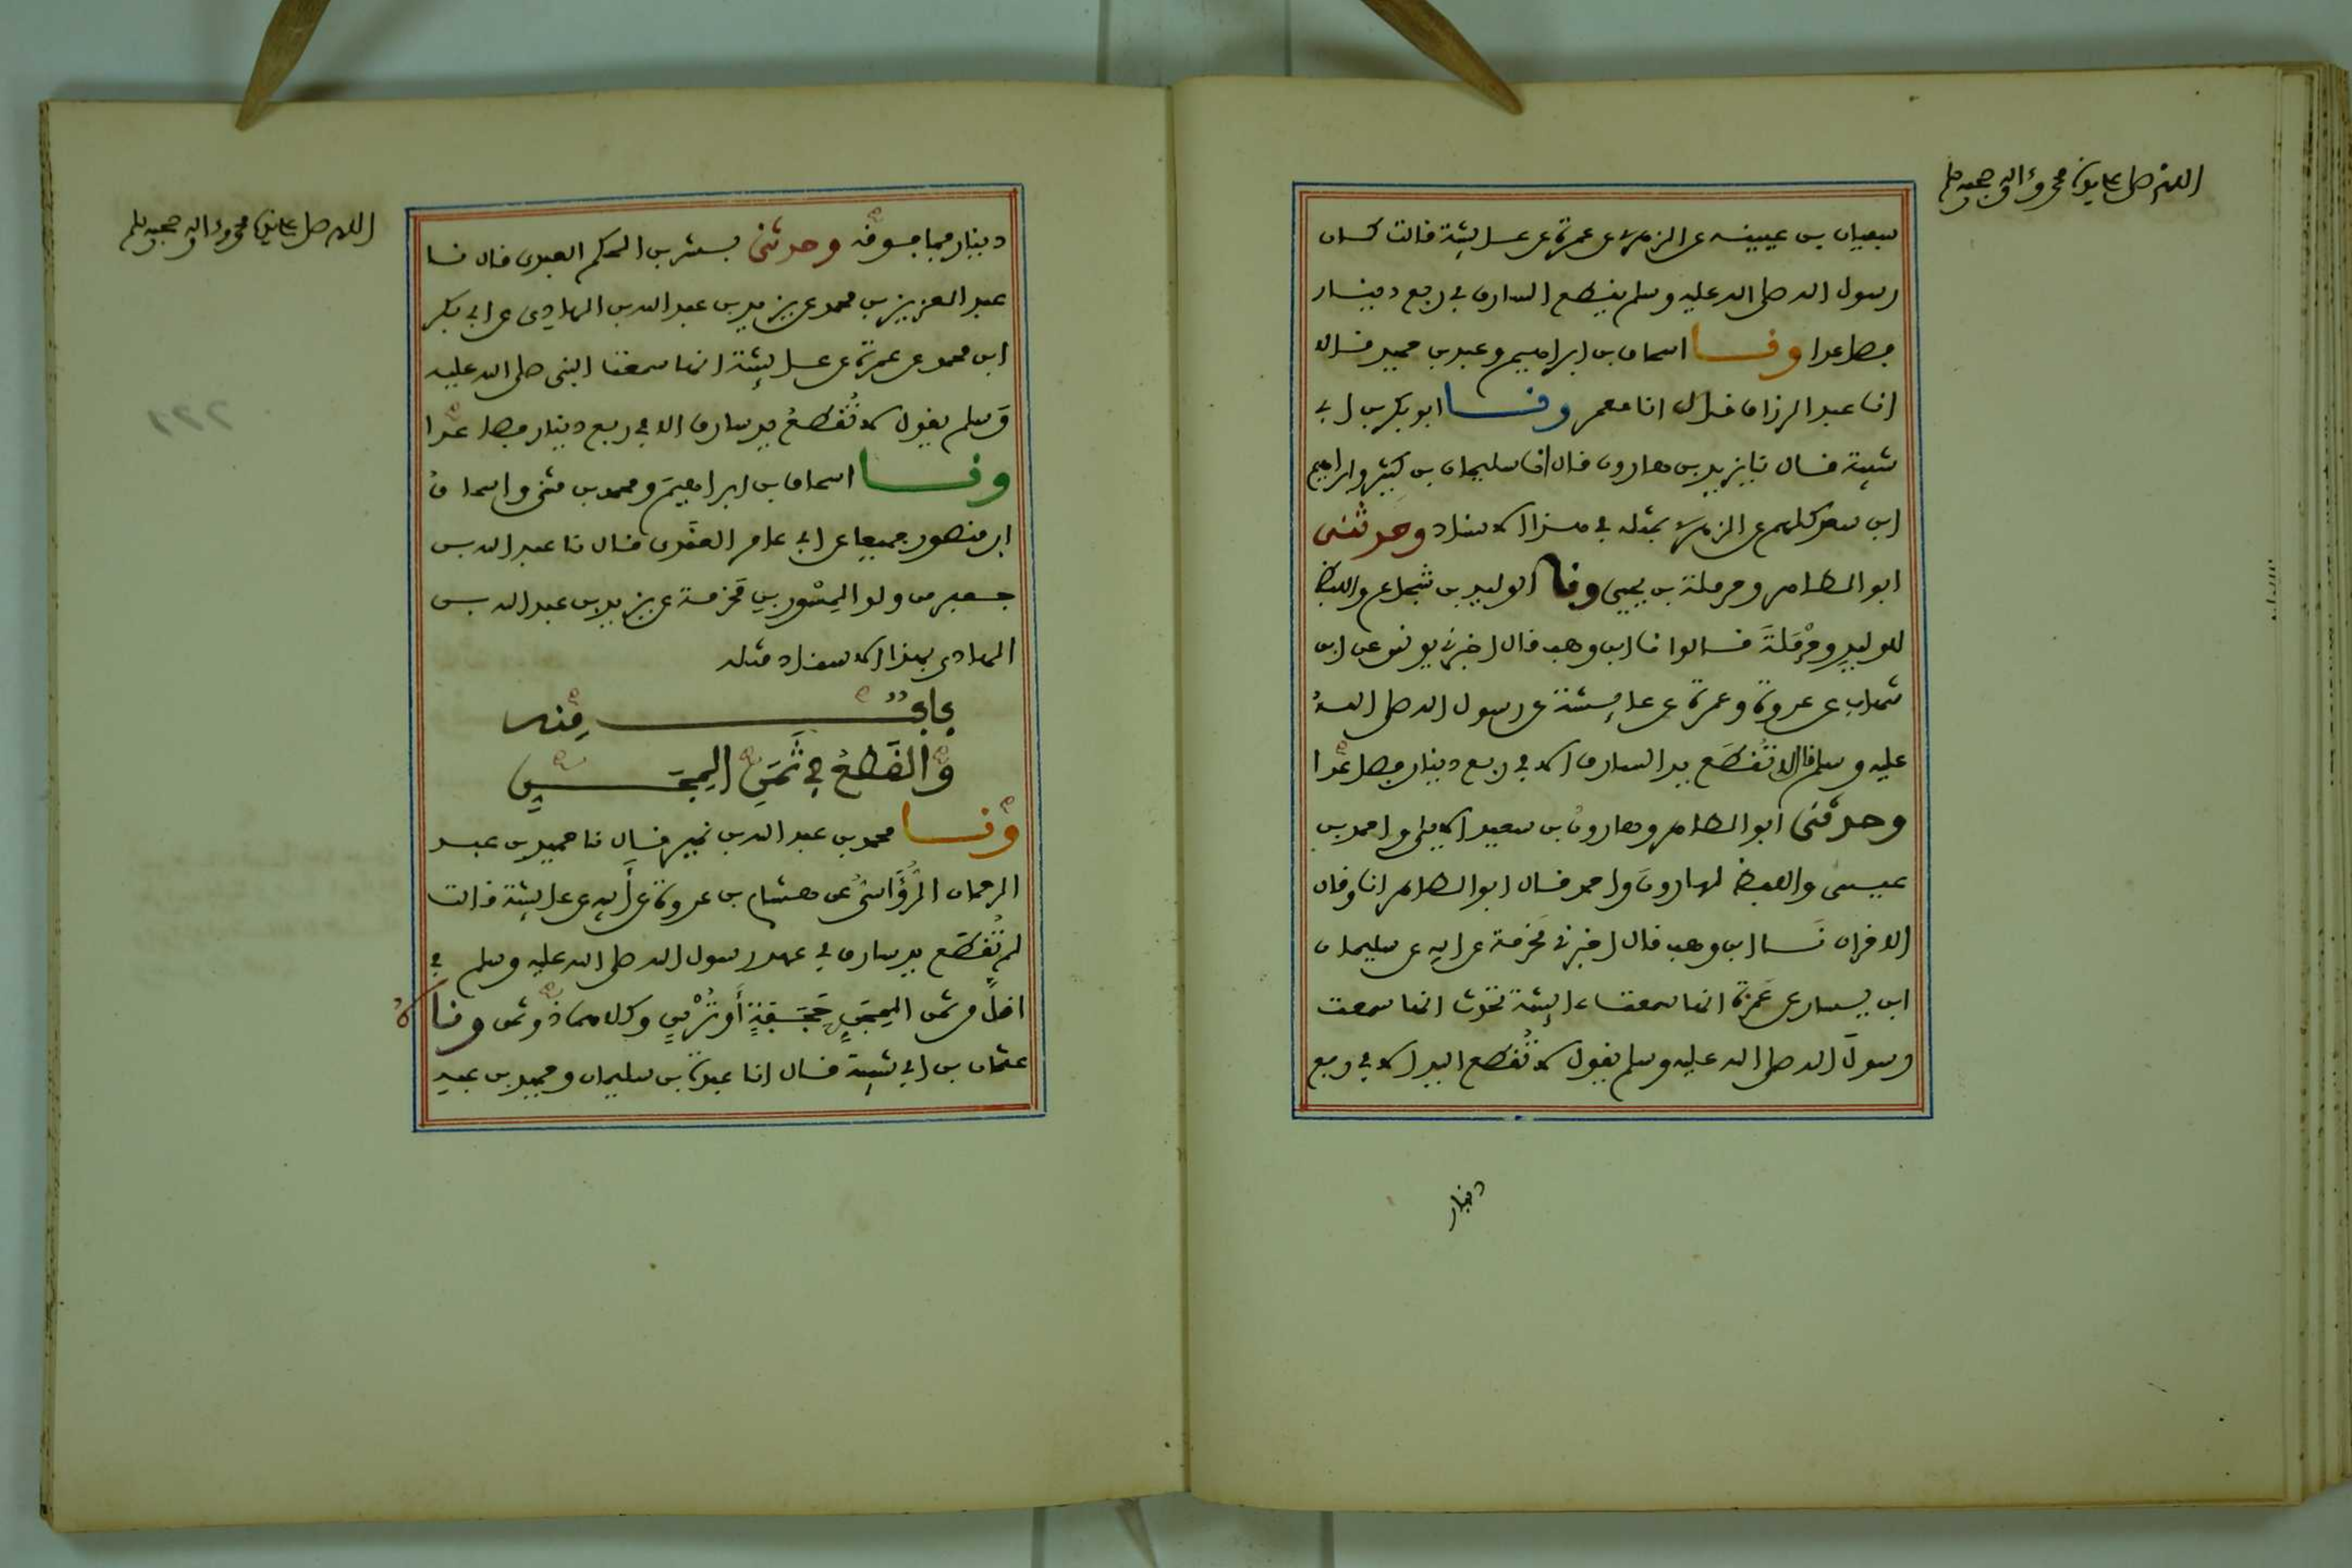 اللهم صل على سيدنا محمد وءاله وصحبه وسلم
سفيان بن عيينة عن الزهري عن عمرة عن عائشة قالت كان
رسول الله صلى الله عليه وسلم يقطع السارق في ربع دينار
فصاعدا ونا اسحاق بن ابراهيم وعبد بن حميد قالا
انا عبد الرزاق قال انا معمر ونا ابو بكر بن ابي
شيبة قال نا يزيد بن هارون قال انا سليمان بن كثير وابراهيم
ابن سعد كلهم عن الزهري بمثله في هذا الاسناد وحدثني
ابو الطاهر وحرملة بن يحيى ونا الوليد بن شجاع واللفظ
للوليد وحرملة قالوا نا ابن وهب قال اخبرني يونس عن ابن
شهاب عن عروة وعمرة عن عائشة عن رسول الله صلى الله
عليه وسلم قال لا تُقطَع يد السارق الا في ربع دينار فصاعدا
وحدثني ابو الطاهر وهارون بن سعيد الايلي واحمد بن
عيسى واللفظ لهارون واحمد قال ابو الطاهر انا وقال
الاخران نا ابن وهب قال اخبرني مخرمة عن ابيه عن سليمان
ابن يسار عن عَمرة انها سمعت عائشة تحدث انها سمعت
رسول الله صلى الله عليه وسلم يقول لا تُقطع اليد الا في ربع
دينار
اللهم صل على سيدنا محمد وءاله وصحبه وسلم
دينار فما فوقه وحدثني بشر بن الحكم العبدي قال نا
عبد العزيز بن محمد عن يزيد بن عبد الله بن الهادي عن ابي بكر
ابن محمد عن عمرة عن عائشة انها سمعت النبي صلى الله عليه
وَسلم يقول لا تُقطعُ يد سارق الا في ربع دينار فصاعدا
ونا اسحاق بن ابراهيم ومحمد بن مثنى واسحاق
ابن منصور جميعا عن ابي عامر العقَدي قال نا عبد الله بن
جعفر من ولد المِسْور بن مَخرمة عن يزيد بن عبد الله بن
الهادي بهذا الاسناد مثله
باب منه
والقَطعُ في ثَمَن المِجَنِّ
ونا محمد بن عبد الله بن نمير قال نا حميد بن عبد
الرحمان الرُّؤَاسيُّ عن هشام بن عروة عن أبيه عن عائشة قالت
لم تُقطَع يد سارق في عهد رسول الله صلى الله عليه وسلم في
اقلَّ من ثمن المِجَنِّ حَجَفةٍ أَو تُرْسٍ وكلاهما ذو ثمن ونا
عثمان بن ابي شيبة قال انا عبدة بن سليمان وحميد بن عبد